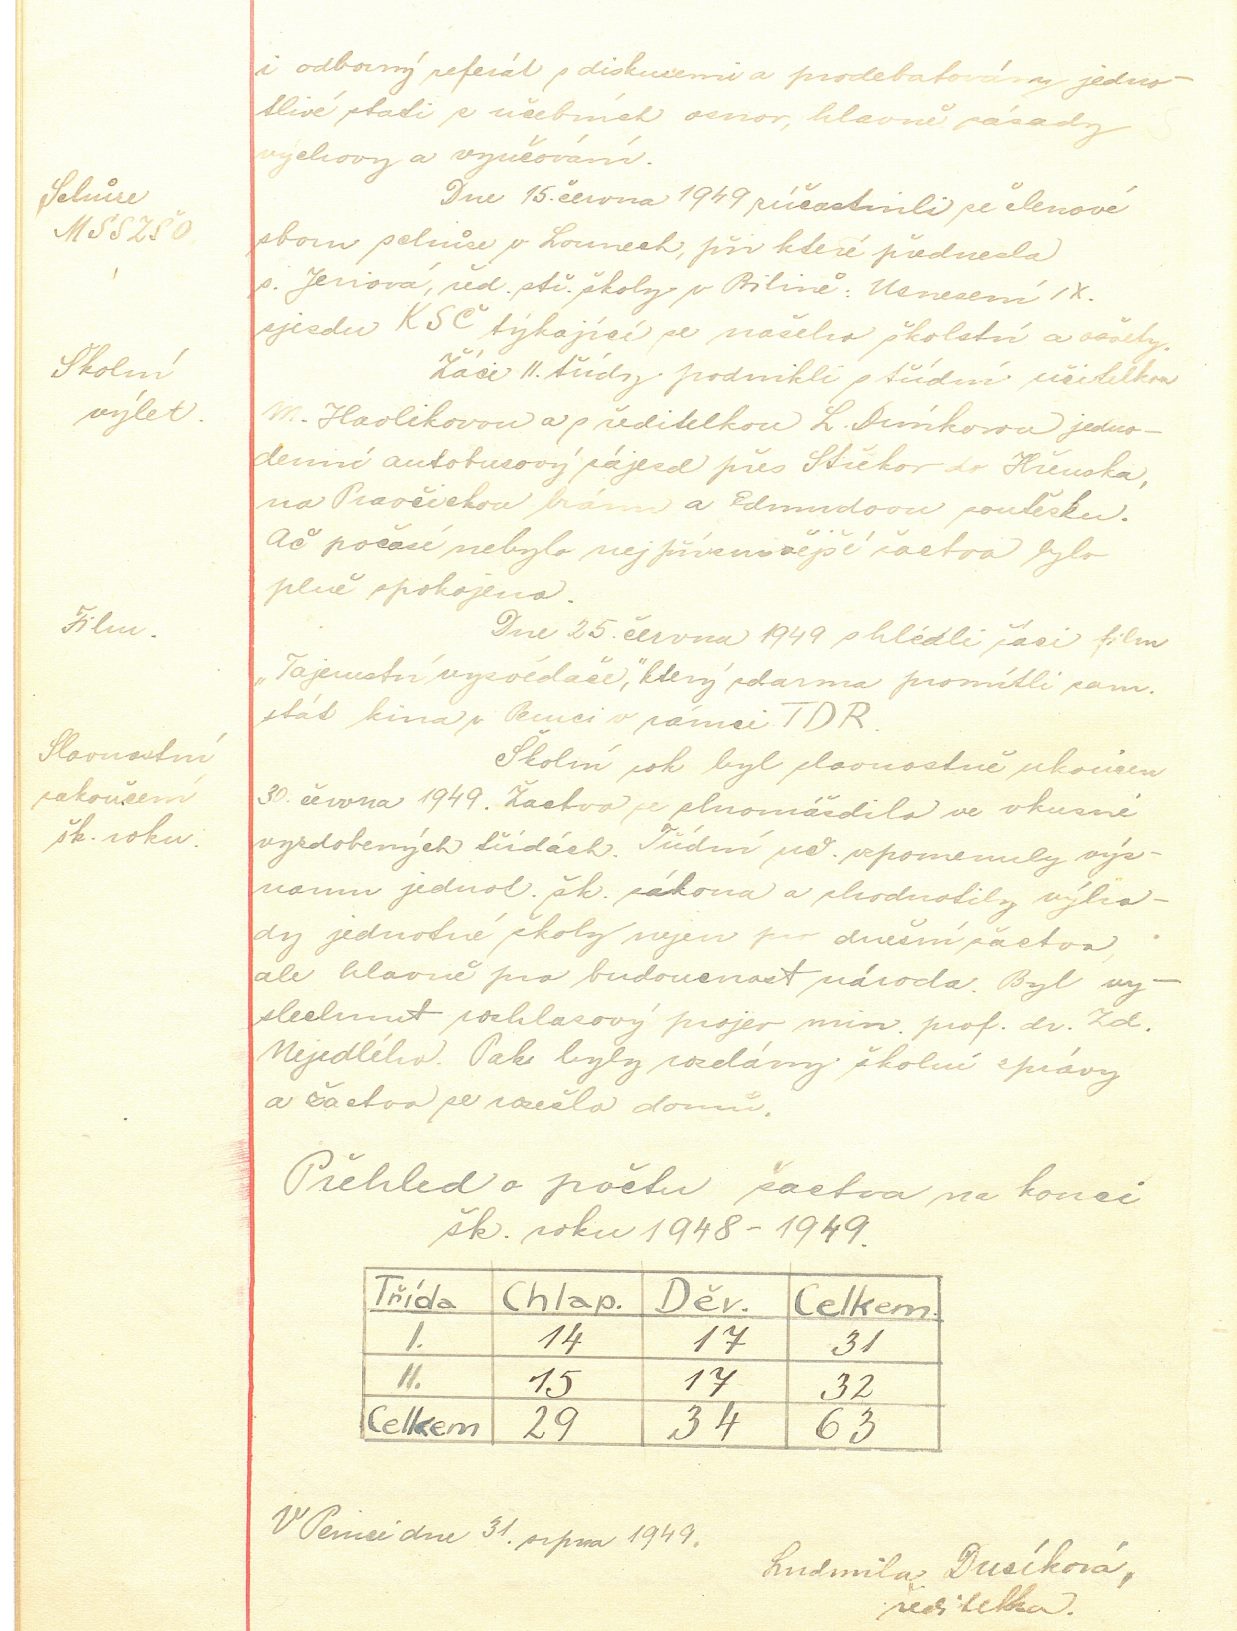 i odborný referát s diskusemi a prodebatovány jedno-
tlivé stati z učebních osnov, hlavně zásady
výchovy a vyučování.
Schůze
MSSZŠO
Dne 15. června 1949 zúčastnili se členové
sboru schůze v Lounech, při které přednesla
s. Jeriová, řed. stř. školy v Bílině: Usnesení IX.
sjezdu KSČ týkající se našeho školství a osvěty.
Školní
výlet.
Žáci II. třídy podnikli s třídní učitelkou
M. Havlíkovou a s ředitelkou L. Dusíkovou jedno-
denní autobusový zájezd přes Střekov do Hřenska,
na Pravčickou bránu a Edmundovu soutěsku.
Ač počasí nebylo nejpříznivější žactvo bylo
plně spokojeno.
Film.
Dne 25. června 1949 shlédli žáci film
„Tajemství vyzvědače," který zdarma promítli zam.
stát kina v Peruci v rámci TDR.
Slavnostní
zakončení
šk. roku.
Školní rok byl slavnostně ukončen
30. června 1949. Žactvo se shromáždilo ve vkusně
vyzdobených třídách. Třídní uč. vzpomenuly výz-
namu jednot. šk. zákona a zhodnotily výho-
dy jednotné školy nejen pro dnešní žactvo,
ale hlavně pro budoucnost národa. Byl vy-
slechnut rozhlasový projev min. prof. dr. Zd.
Nejedlého. Pak byly rozdány školní zprávy
a žactvo se rozešlo domů.
Přehled o počtu žactva na konci
šk. roku 1948 - 1949.
Třída Chlap. Děv. Celkem.
I. 14 17 31
II. 15 17 32
Celkem 29 34 63
V Peruci dne 31. srpna 1949.
Ludmila Dusíková,
ředitelka.